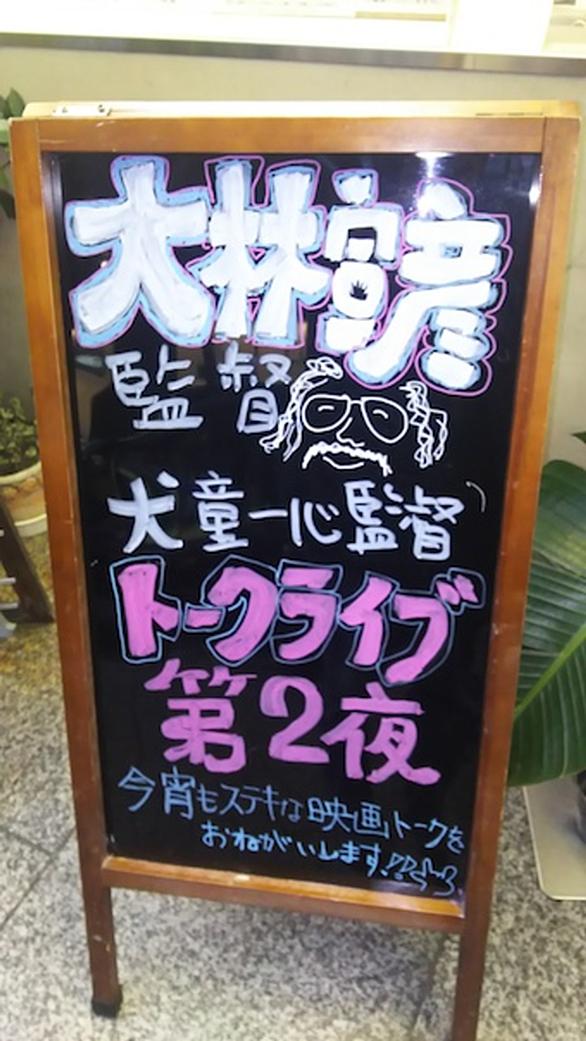 大林宣彦
監督
犬童一心監督
トークライブ
第2夜
今宵もステキな映画トークを
おねがいします!!